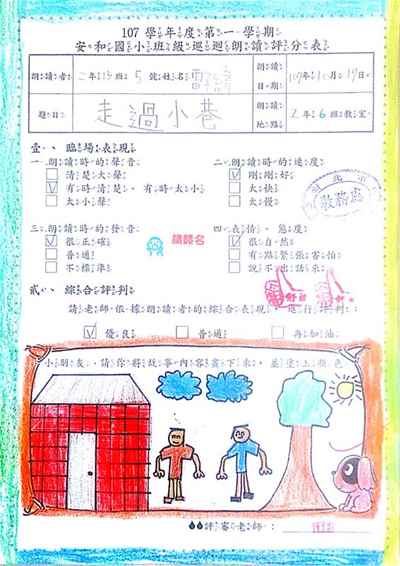 107 學年度第一學期
安和國小班級巡迴朗讀評分表
朗讀者 2年13班5號姓名
朗讀日期 107年10月19日
題目 走過小巷
朗讀地點 2年6班教室
壹、臨場表現
一、朗讀時的聲音
清楚大聲
✓ 有時清楚、有時太小
太小聲
二、朗讀時的速度
✓ 剛剛好
太快
太慢
教務處
三、朗讀時的發音
✓ 很正確
普通
不標準
請簽名
四、表情、態度
✓ 很自然
有點緊張害怕
說不出話來
貳、綜合評判
請老師依據朗讀者的綜合表現，進行評判：
✓ 優良 普通 再加油
小朋友，請你將故事內容畫下來，並塗上顏色
評審老師：